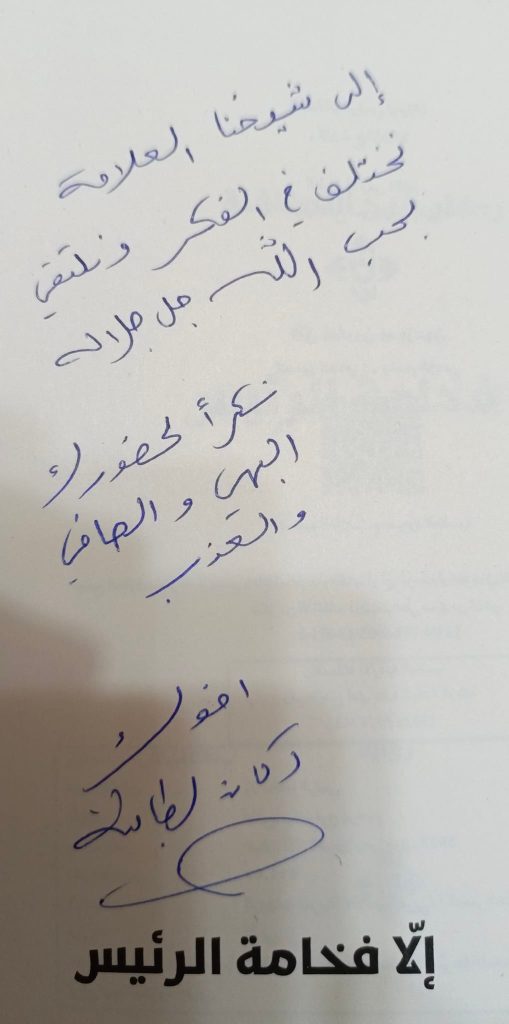 إلى شيوخنا العلامة
نختلف في الفكر ونلتقي
بحب الله جل جلاله
شكراً لحضورك
البهي والصافي
والعذب
اخوك
إلّا فخامة الرئيس